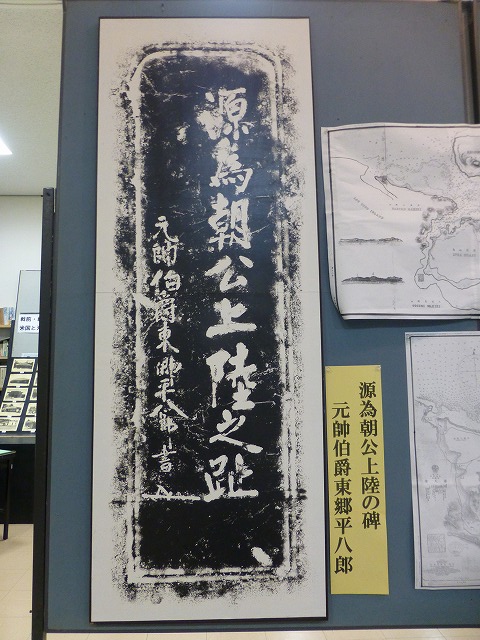 源為朝公上陸之趾
元帥伯爵東郷平八郎書
源為朝公上陸の碑
元帥伯爵東郷平八郎